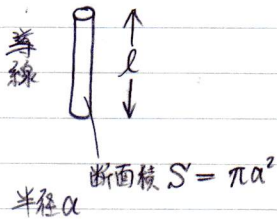 導線
l
断面積 S = πa²
半径a